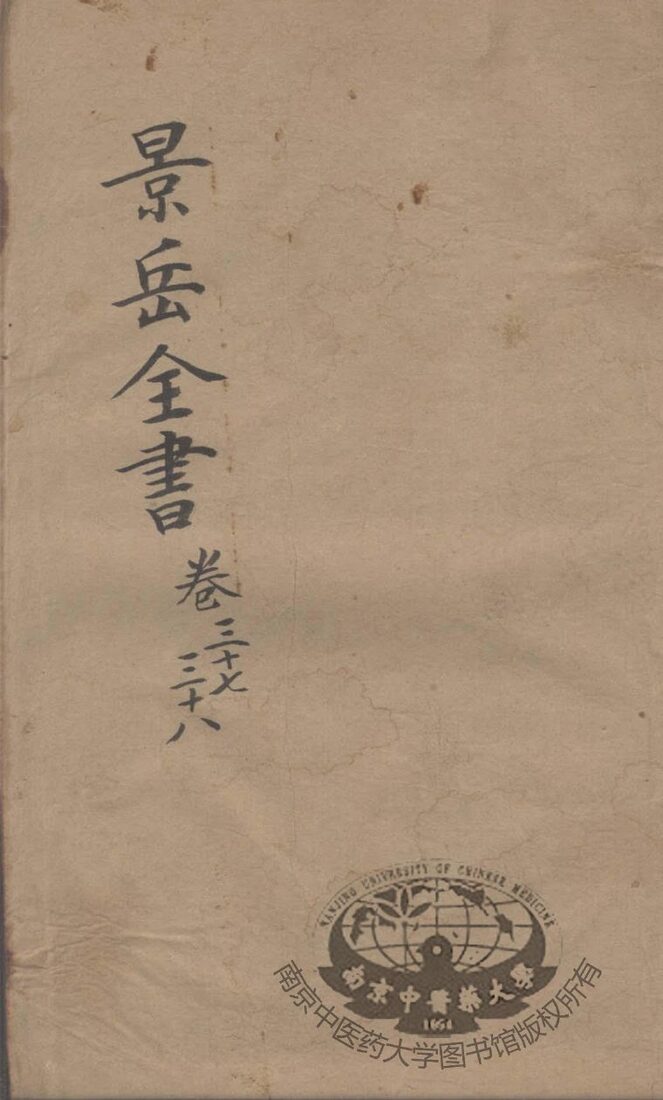 景岳全書
卷三十七
三十八
NANJING UNIVERSITY OF CHINESE MEDICINE
南京中醫藥大學
1954
南京中医药大学图书馆版权所有